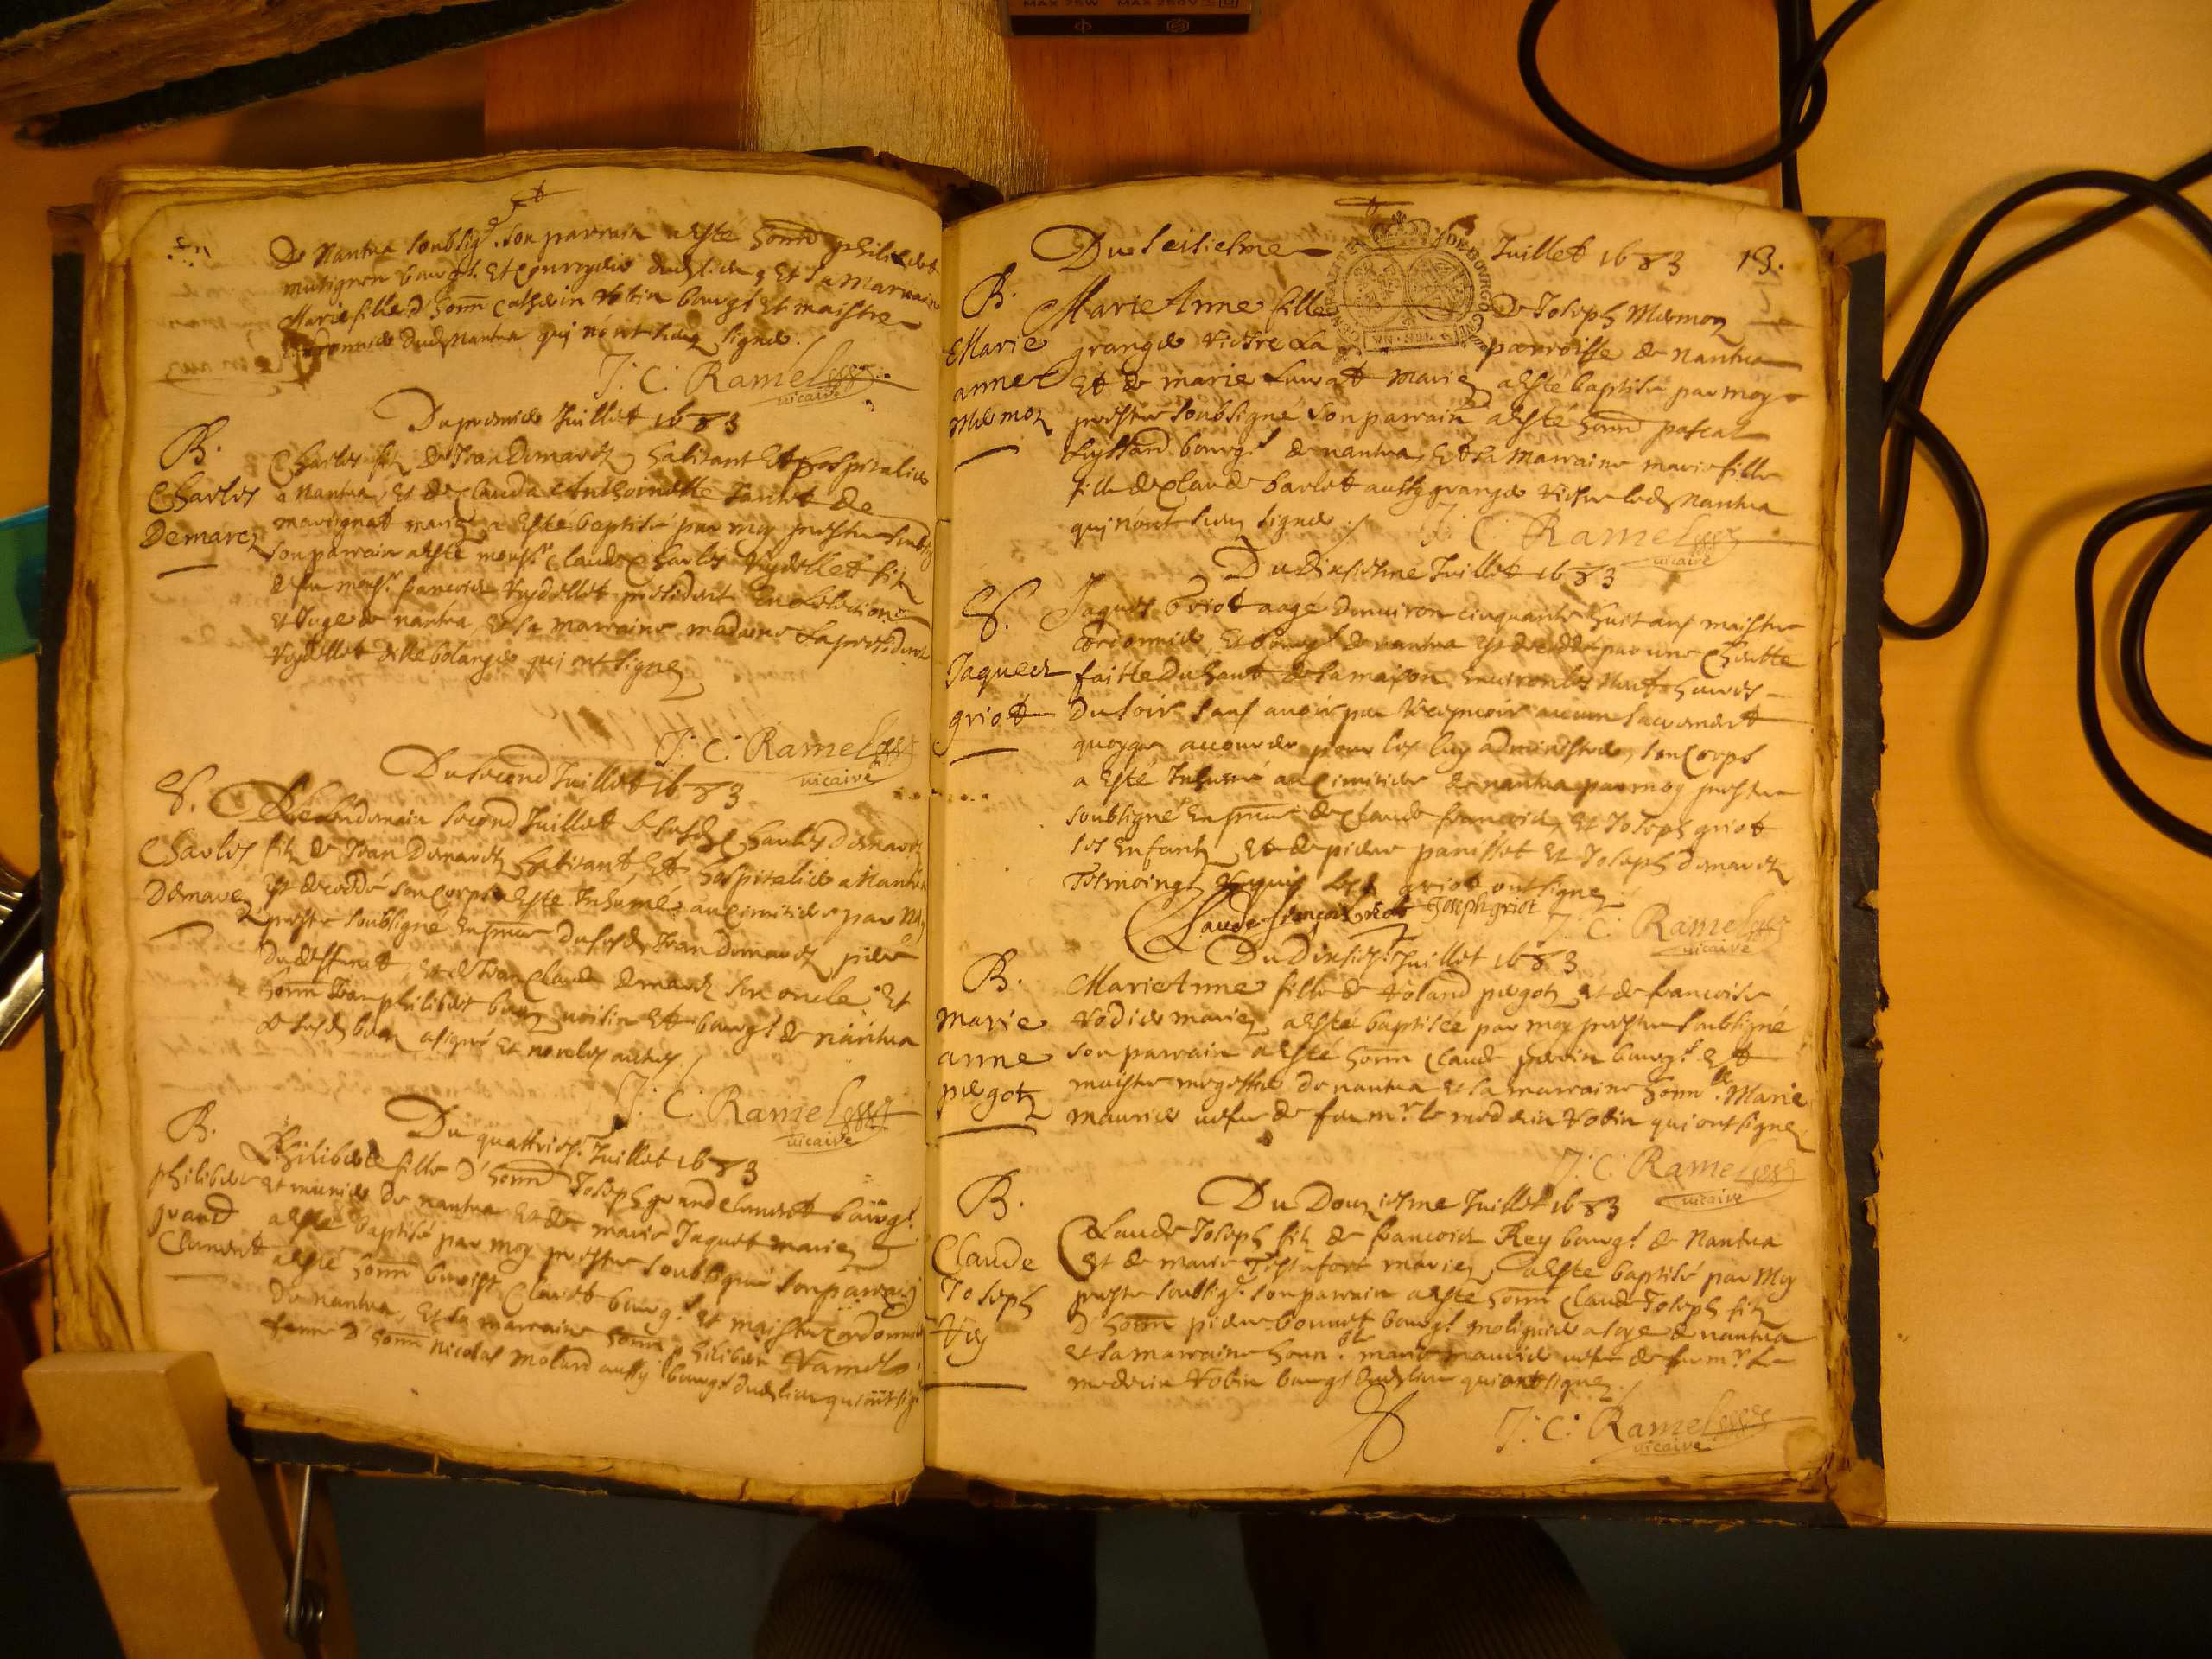 MAX 75W MAX 250V
De Nantua soubsig.é son parrain a esté honn philibert
mutignon bourg.s Et Conroyeur dud lieu, Et La Marraine
Marie fille d'honn Cathelin Robin bourgs Et maistre
Cordonnier dud Nantua qui n'ont sceu signer.
J: C: Ramel
vicaire
Du premier Juillet 1683
B.
Charles
Demarcz
Charles filz de Jean Demarcz habitant Et hospitalier
a Nantua, Et de Clauda Anthoinette de
marignat mariez a Esté baptisé par moy prestre soubsig
son parrain a esté mons.r Claude Charles Vuydellet filz
de feu mons.r francois Vuydellet president En L'election
Et Juge de nantua, Et sa marraine madame La presidente
Vuydellet delle bolanger qui ont signez
J: C: Ramel
vicaire
Du second Juillet 1683
S.
Charles
Demarcz
Le Lendemain second Juillet Le susd Charles Demarcz
filz de Jean Demarcz habitant, Et hospitalier a Nantua
Est decedé son Corps a Esté Inhumé au Cimitier par Moy
prestre soubsigné En pnce du susd Jean Demarcz pere
Du deffunct, Et de Jean Claude Demarcz son oncle Et
honn Jean philibert voisin Et bourg.s de nantua
Le susd a signé Et non les autres.
J: C: Ramel
vicaire
Du quattriesme Juillet 1683
B.
philiberte
grand
Clement
Philiberte fille D'honn Joseph grand clement bourg.s
Et munier De nantua Et de marie Jaquet mariez
a esté baptisé par moy prestre soubsigné son parrain
a esté honn benoist Claret bourg.s Et maistre Cordonnier
De nantua, Et sa marraine honn philiberte Ramel
femme D'honn Nicolas Molard aussy bourgs dud lieu qui ont sig
Du seisiesme Juillet 1683 13.
GENERALITE DE BOURGOGNE
B.
Marie
anne
Mermoz
Marie Anne fille De Joseph Mermoz
granger Riere La parroisse de nantua
Et de marie mariez a esté baptisé par moy
prestre soubsigné son parrain a esté honn pascal
Luyssard bourg.s de nantua, Et sa Marraine marie fille
fille de Claude barlet aussy granger Riere led Nantua
qui n'ont sceu signer
J: C: Ramel
vicaire
Du dixsetiesme Juillet 1683
S.
Jaques
griot
Jaques Griot aagé d'environ cinquante huit ans maistre
Cordonnier, Et bourg.s de nantua Est decedé par une Cheutte
faitte Du haut de sa maison Environ les Neuf heures
Du soir sans avoir peu recepvoir aucun sacrement
quoyque accouru pour les luy administrer, son Corps
a Esté Inhumé au Cimitier de nantua par moy prestre
soubsigné En pnce de Claude francois, Et Joseph griot
ses Enfantz, Et de pierre panisset Et Joseph demarcz
Tesmoingz Lesquelz griot ont signez
Claude françois Griot Joseph griot
J: C: Ramel
vicaire
Du Dixsiesme Juillet 1683
B.
marie
anne
pergoz
Marie Anne fille de Roland pergoz et de francoise
Rodier mariez, a esté baptisée par moy prestre soubsigné
son parrain a esté honn Claude bourg.s Et
maistre de nantua Et la marraine honn.ble Marie
maurier vefve de feu m.r le medecin Robin qui ont signez
J: C: Ramel
vicaire
Du Douziesme Juillet 1683
B.
Claude
Joseph
Rey
Claude Joseph filz de francois Rey bourg.s de Nantua
Et de marie Testafort mariez, a esté baptisé par Moy
prestre soubsig.é son parrain a esté honn Claude Joseph filz
D'honn pierre bonnet bourg.s molinier a soye de nantua
et sa marraine honn.ble marie maurier vefve de feu m.r Le
medecin Robin bourgs dud lieu qui ont signez.
J: C: Ramel
vicaire